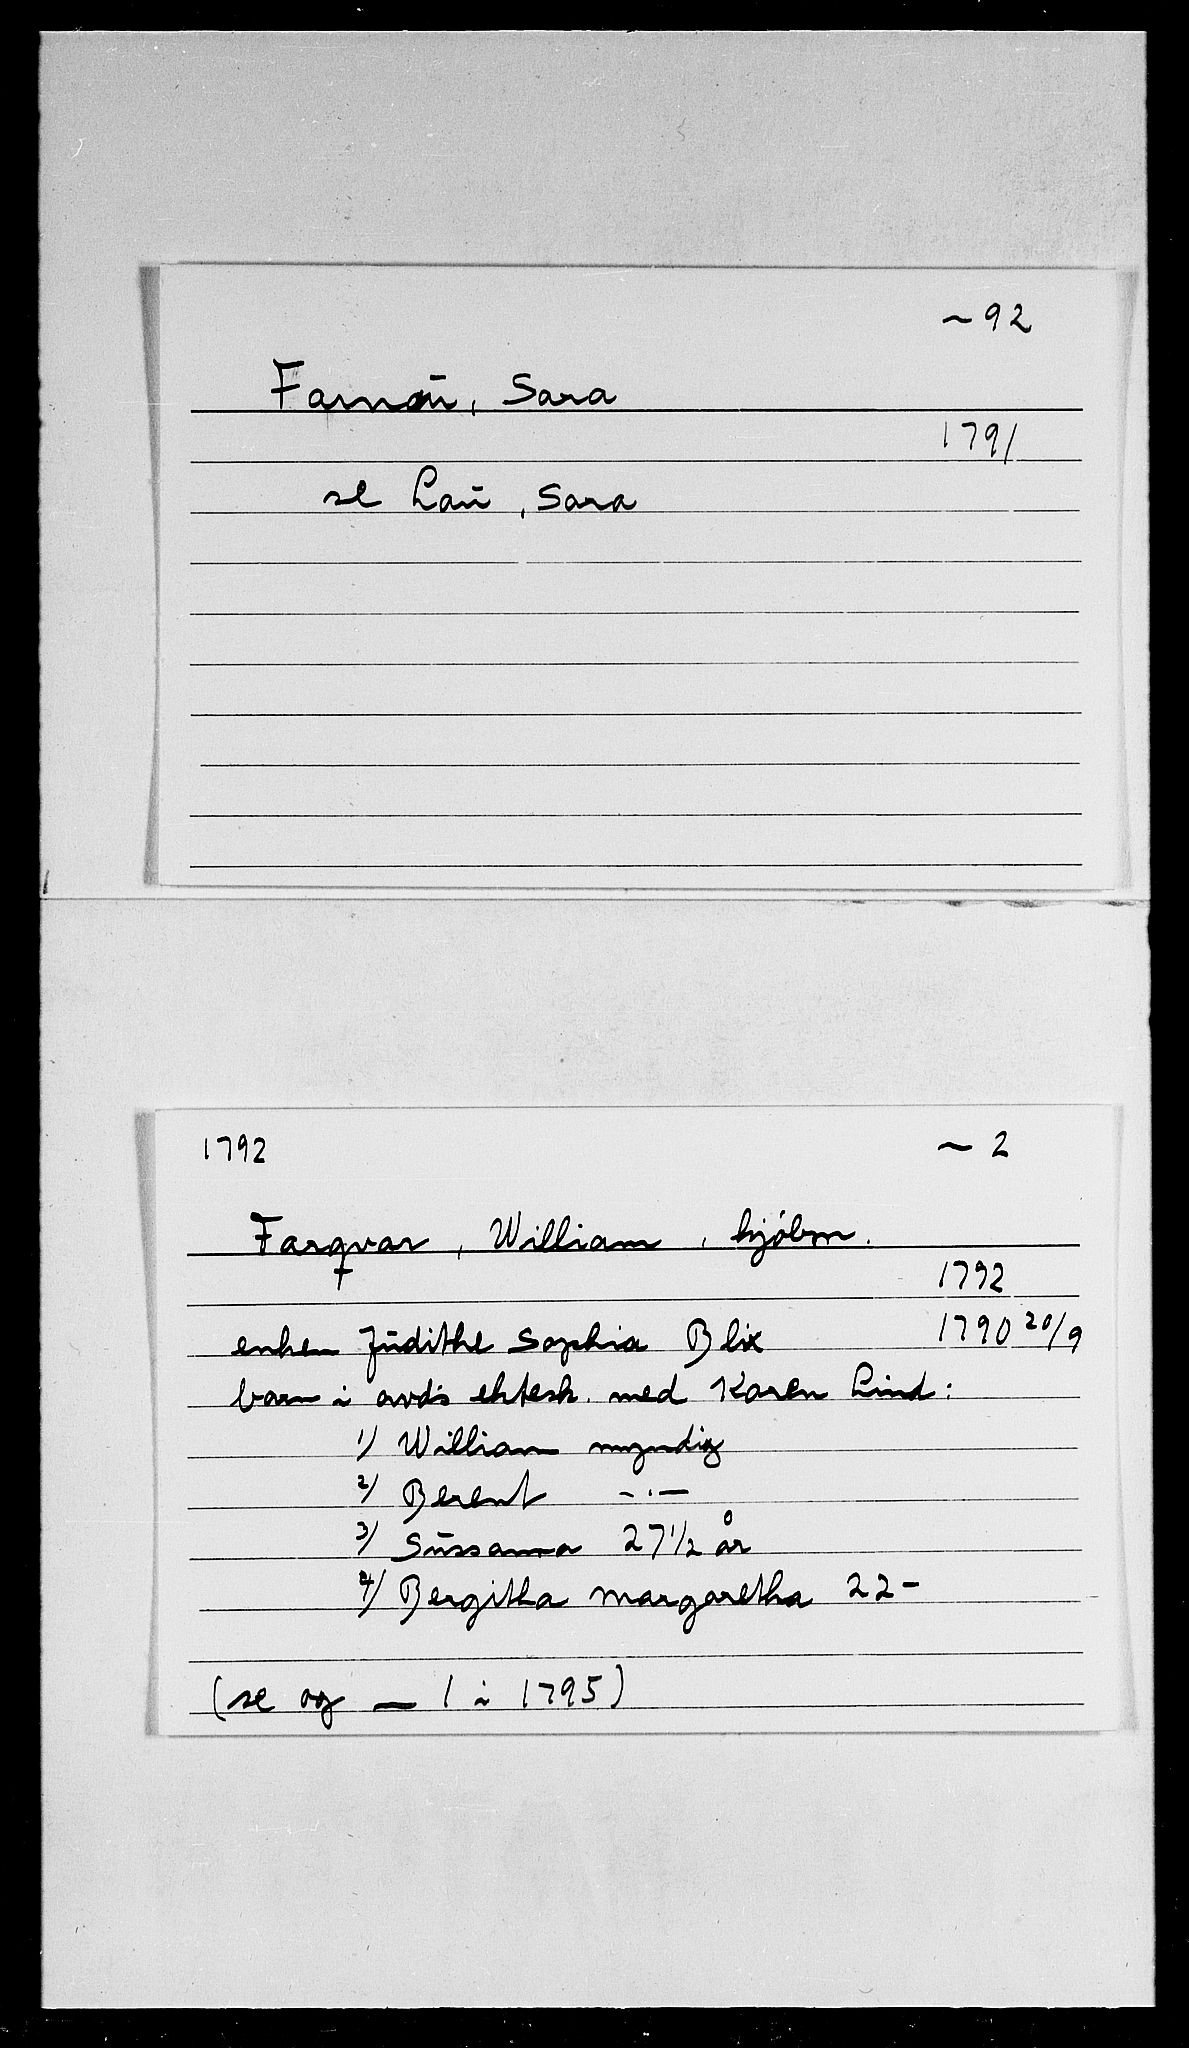 ~ 92
Farnaū, Sara
1791
se Laū, Sara
1792 ~ 2
Farqvar, William, kjøbm.
† 1792
enken Jūdithe Sophia Blix 1790 20/9
barn i avd's ektesk. med Karen Lind:
1/ William myndig
2/ Berent -·-
3/ Sūssanna 27 1/2 år
4/ Bergitha Margaretha 22 -
(se og — 1 i 1795)